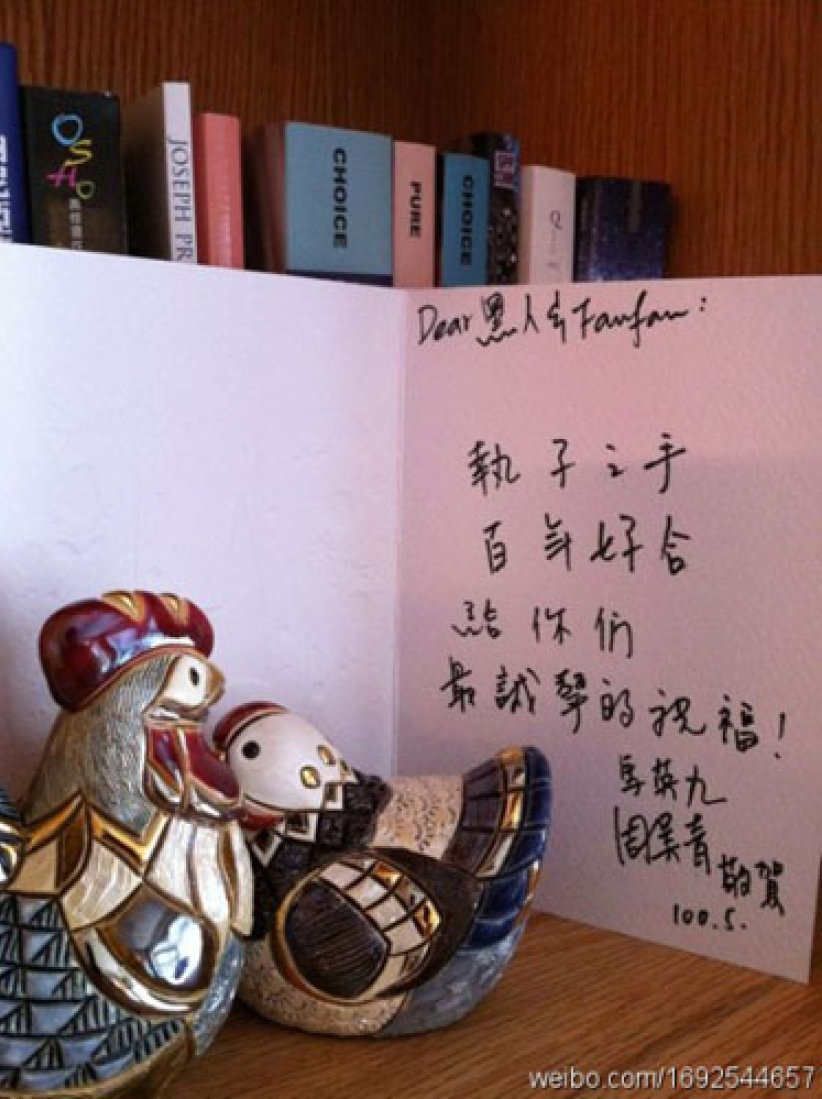 OSHO
JOSEPH PR
CHOICE
PURE
CHOICE
Dear 黑人&Fanfan:
執子之手
百年好合
給你們
最誠摯的祝福!
馬英九
周美青 敬賀
100.5.
weibo.com/1692544657